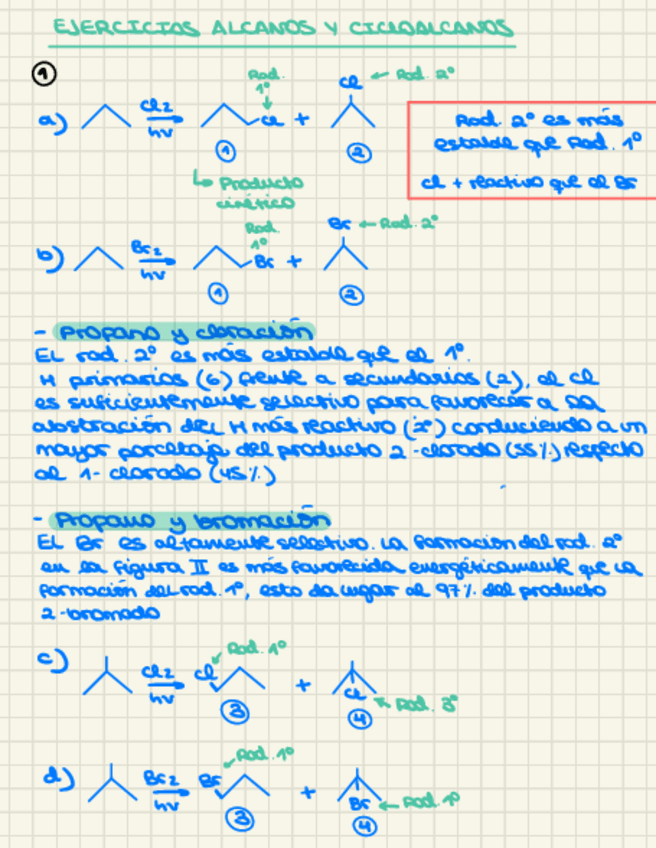 EJERCICIOS ALCANOS Y CICLOALCANOS
①
a) Cl2 hv Rad. 1º Cl + Cl ← Rad. 2º
① ②
↳ Producto cinético
Rad. 2º es más
estable que Rad. 1º
Cl + reactivo que el Br
b) Br2 hv Rad. 1º Br + Br ← Rad. 2º
① ②
- Propano y cloración
EL rad. 2º es más estable que el 1º.
H primarios (6) frente a secundarios (2), el Cl
es suficientemente selectivo para favorecer a la
abstración del H más reactivo (2º) conduciendo a un
mayor porcentaje del producto 2-clorado (55%) respecto
al 1-clorado (45%)
- Propano y bromación
EL Br es altamente selectivo. La formación del rad. 2º
en la figura II es más favorecida energéticamente que la
formación del rad. 1º, esto da lugar al 97% del producto
2-bromado
c) Cl2 hv Cl Rad. 1º + Cl Rad. 3º
③ ④
d) Br2 hv Br Rad. 1º + Br ← Rad. 1º
③ ④